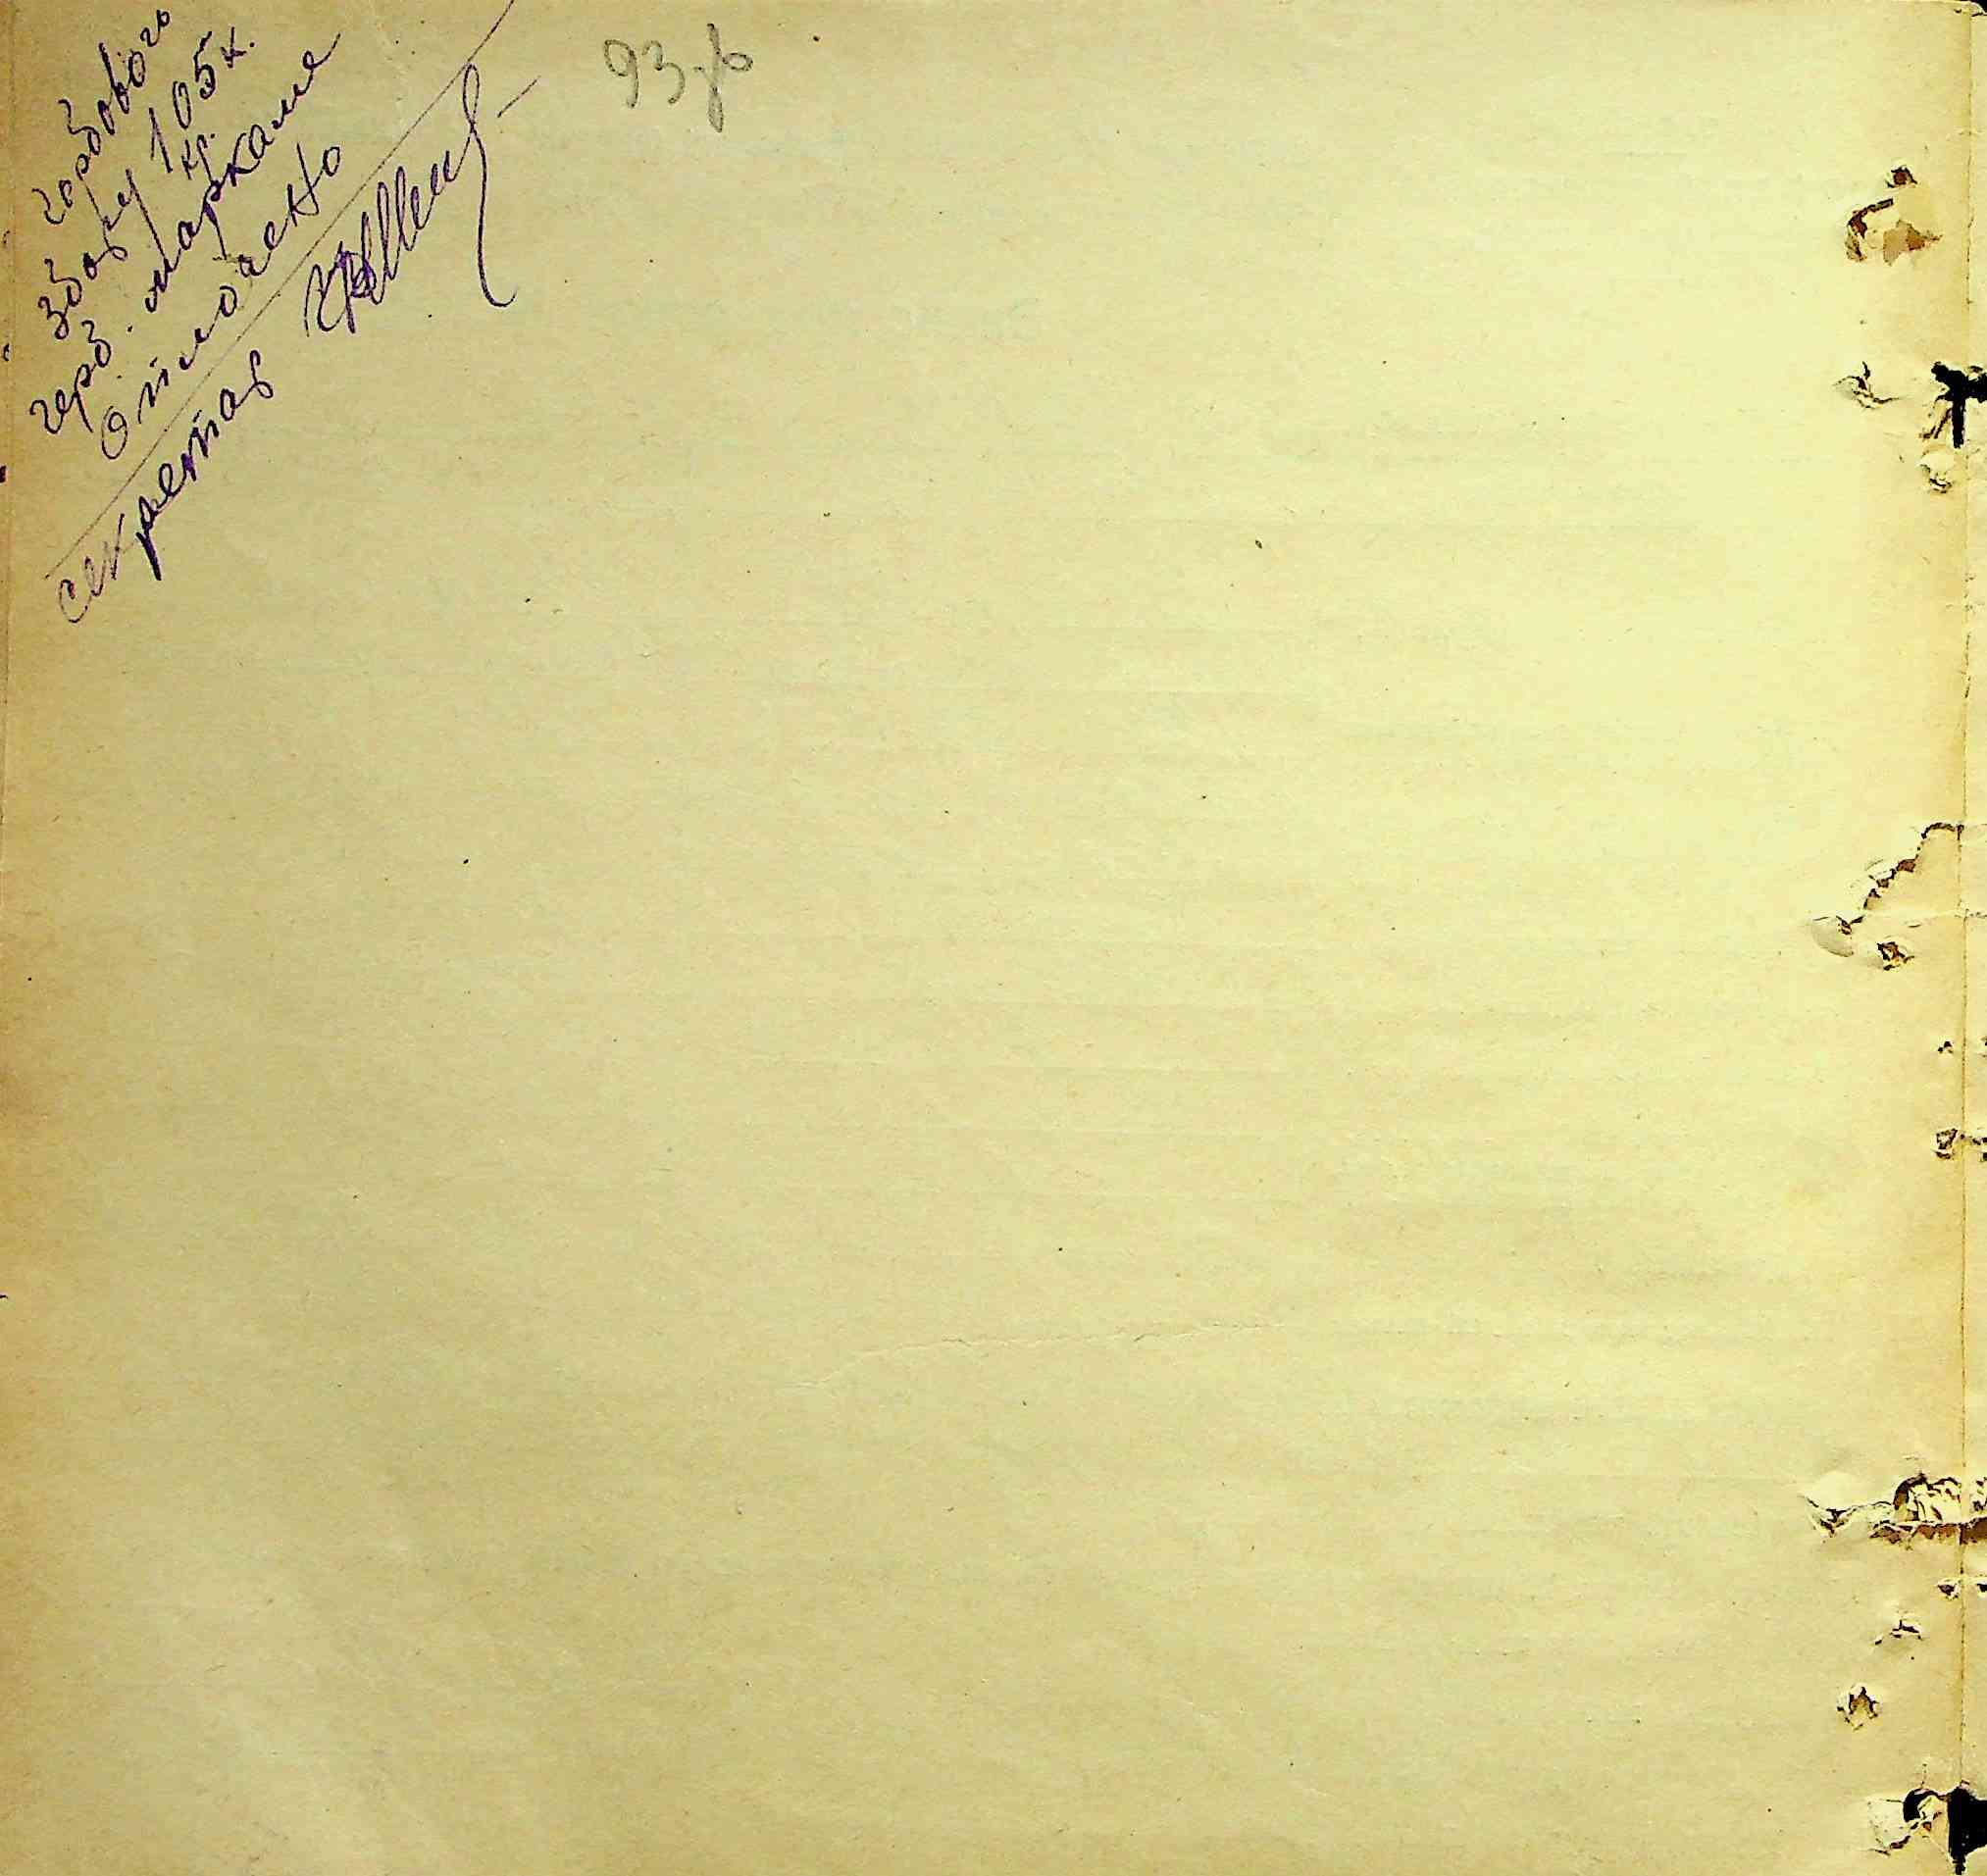 гербового
збору 105 к.
кр.
герб. марками
оплочено
секретар
93